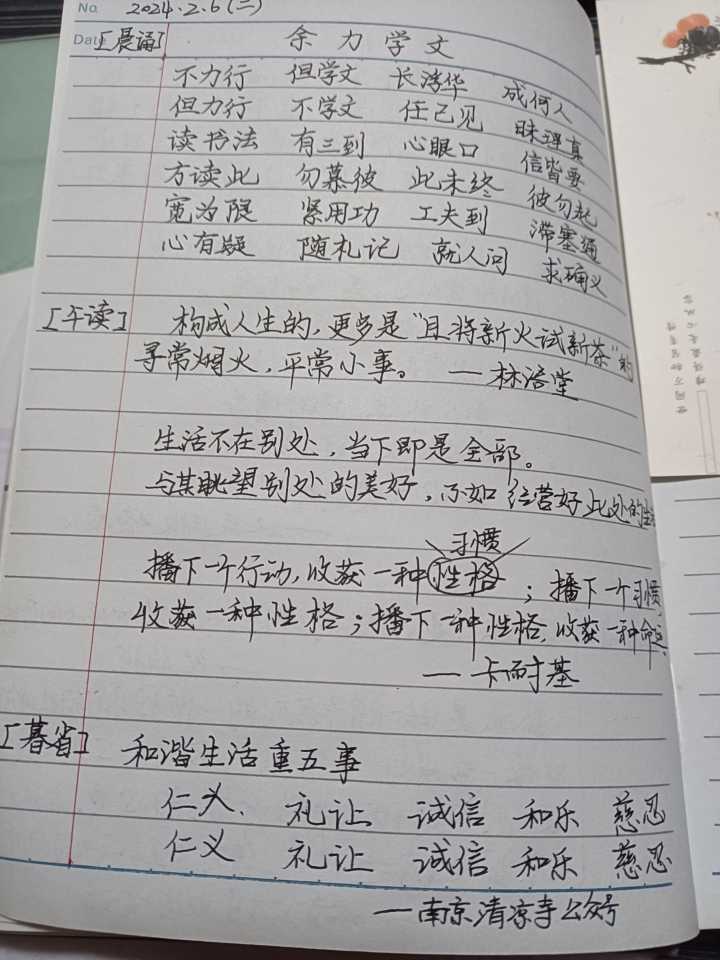 No. 2024.2.6(二)
Date [晨诵] 余力学文
不力行 但学文 长浮华 成何人
但力行 不学文 任己见 昧理真
读书法 有三到 心眼口 信皆要
方读此 勿慕彼 此未终 彼勿起
宽为限 紧用功 工夫到 滞塞通
心有疑 随札记 就人问 求确义
[午读] 构成人生的,更多是"且将新火试新茶"的
寻常烟火,平常小事。 —林语堂
生活不在别处,当下即是全部。
与其眺望别处的美好,不如经营好此处的生
习惯
播下一个行动,收获一种性格;播下一个习惯,
收获一种性格;播下一种性格,收获一种命运。
—卡耐基
[暮省] 和谐生活重五事
仁义、礼让 诚信 和乐 慈忍
仁义 礼让 诚信 和乐 慈忍
—南京清凉寺公众号